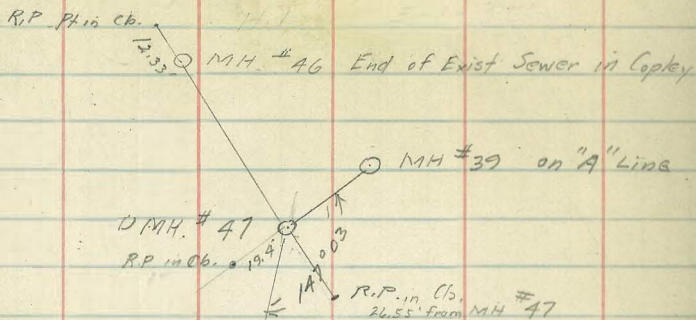 R.P. Pt in Cb.
12.33'
MH. #46 End of Exist Sewer in Copley
MH #39 on "A" Line
DMH. #47
RP in Cb.
19.4'
147°03
R.P. in Cb.
26.55' from MH #47